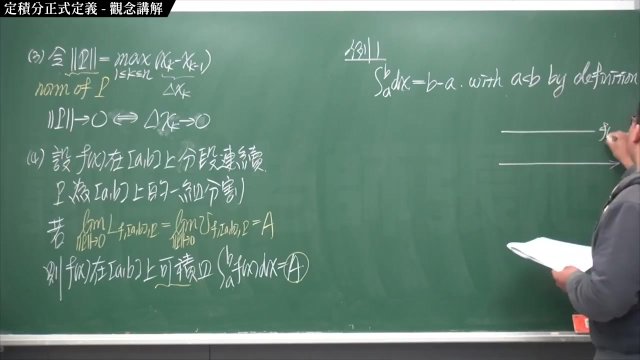 定積分正式定義 - 觀念講解
(3) 令 ||P|| = max (x_k - x_{k-1})
1≤k≤n
Δx_k
norm of P
||P||→0 ⟺ Δx_k→0
(4) 設 f(x) 在 [a,b] 上分段連續,
P 為 [a,b] 上的一組分割
若 lim_{||P||→0} L_{f,[a,b],P} = lim_{||P||→0} U_{f,[a,b],P} = A
則 f(x) 在 [a,b] 上可積且 ∫_a^b f(x)dx = A
例1
∫_a^b dx = b-a. with a<b by definition